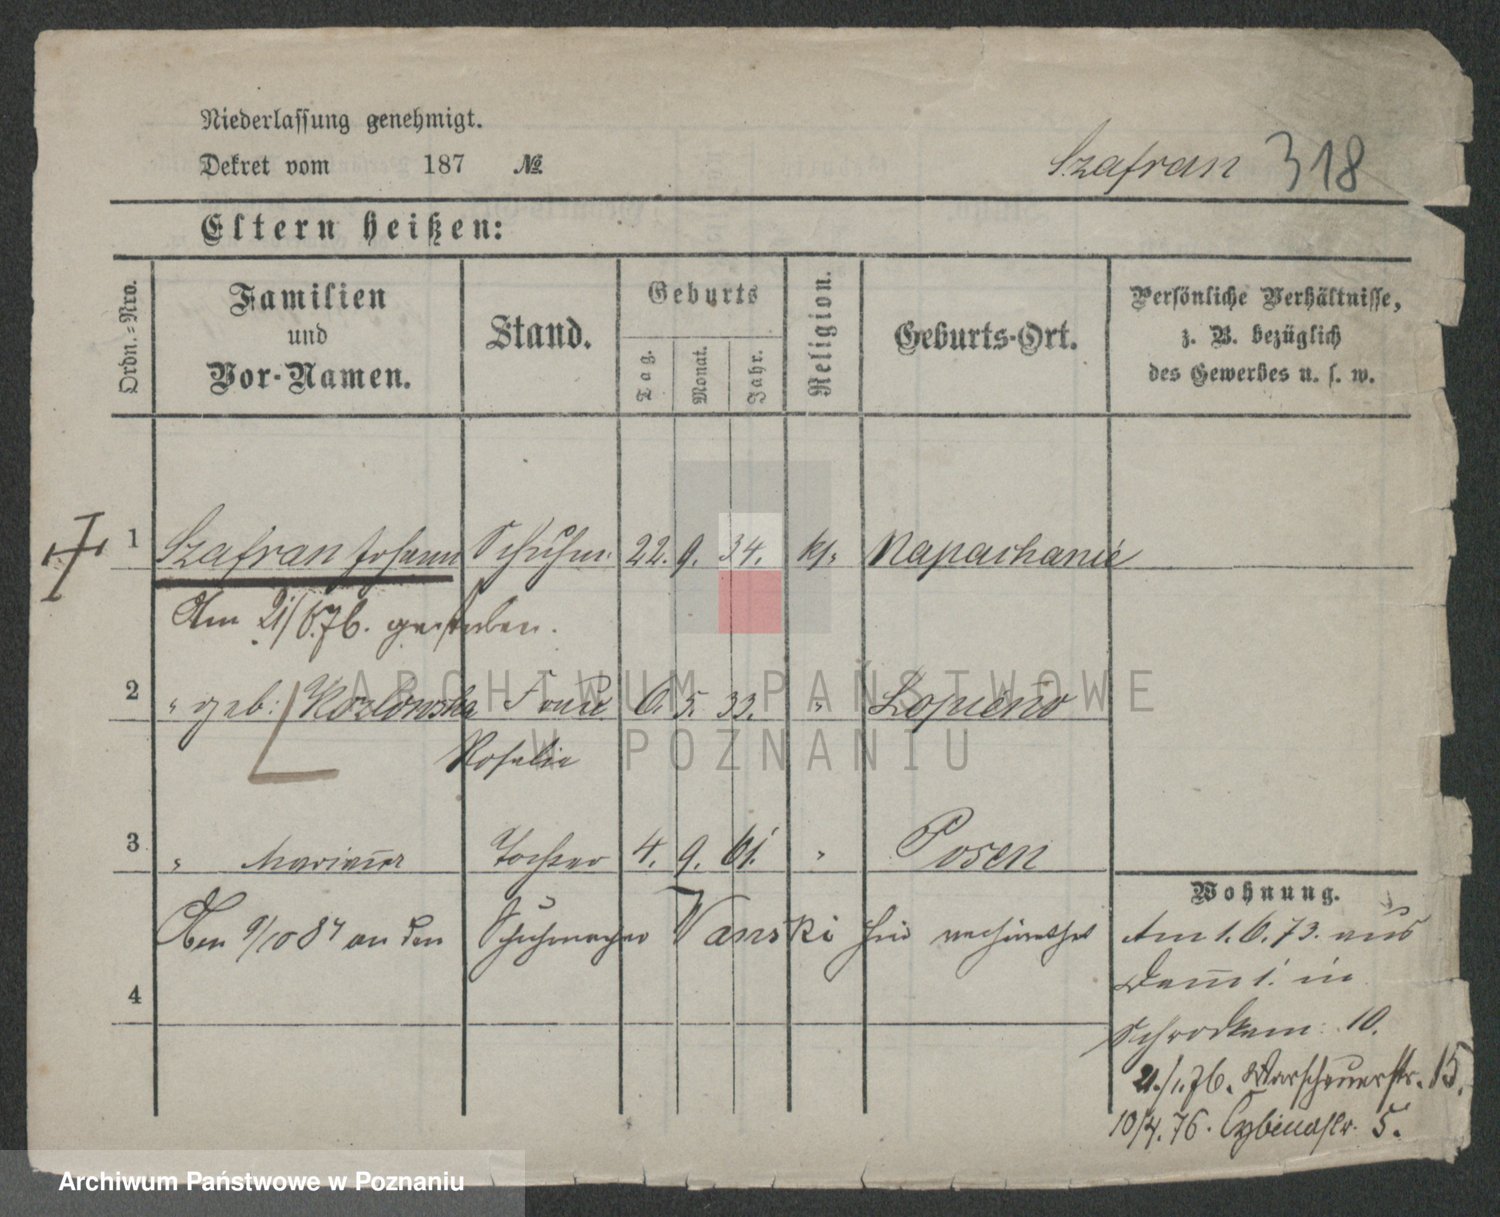 Niederlassung genehmigt.
Dekret vom 187 №
Szafran 318
Eltern heißen:
Ordn.=Nro.
Familien
und
Vor-Namen.
Stand.
Geburts
Tag.
Monat.
Jahr.
Religion.
Geburts-Ort.
Persönliche Verhältnisse,
z. B. bezüglich
des Gewerbes u. s. w.
1 Szafran Johann Schuhm. 22. 9. 34. kh. Napachanie
Am 21/6.76. gestorben.
2 " geb: Kozlowska Frau 6. 5. 33. " Lopieno
Rosalie
3 " Marianna Tochter 4. 9. 61. " Posen
Wohnung.
9/10 87 an den Schuhmacher Wanski hier verheirathet
Am 1. 6. 73. aus
in
4
Schrodkam: 10.
21./1.76. Warschauerstr. 15.
10/4. 76. Cybinastr. 5.
ARCHIWUM PAŃSTWOWE
W POZNANIU
Archiwum Państwowe w Poznaniu